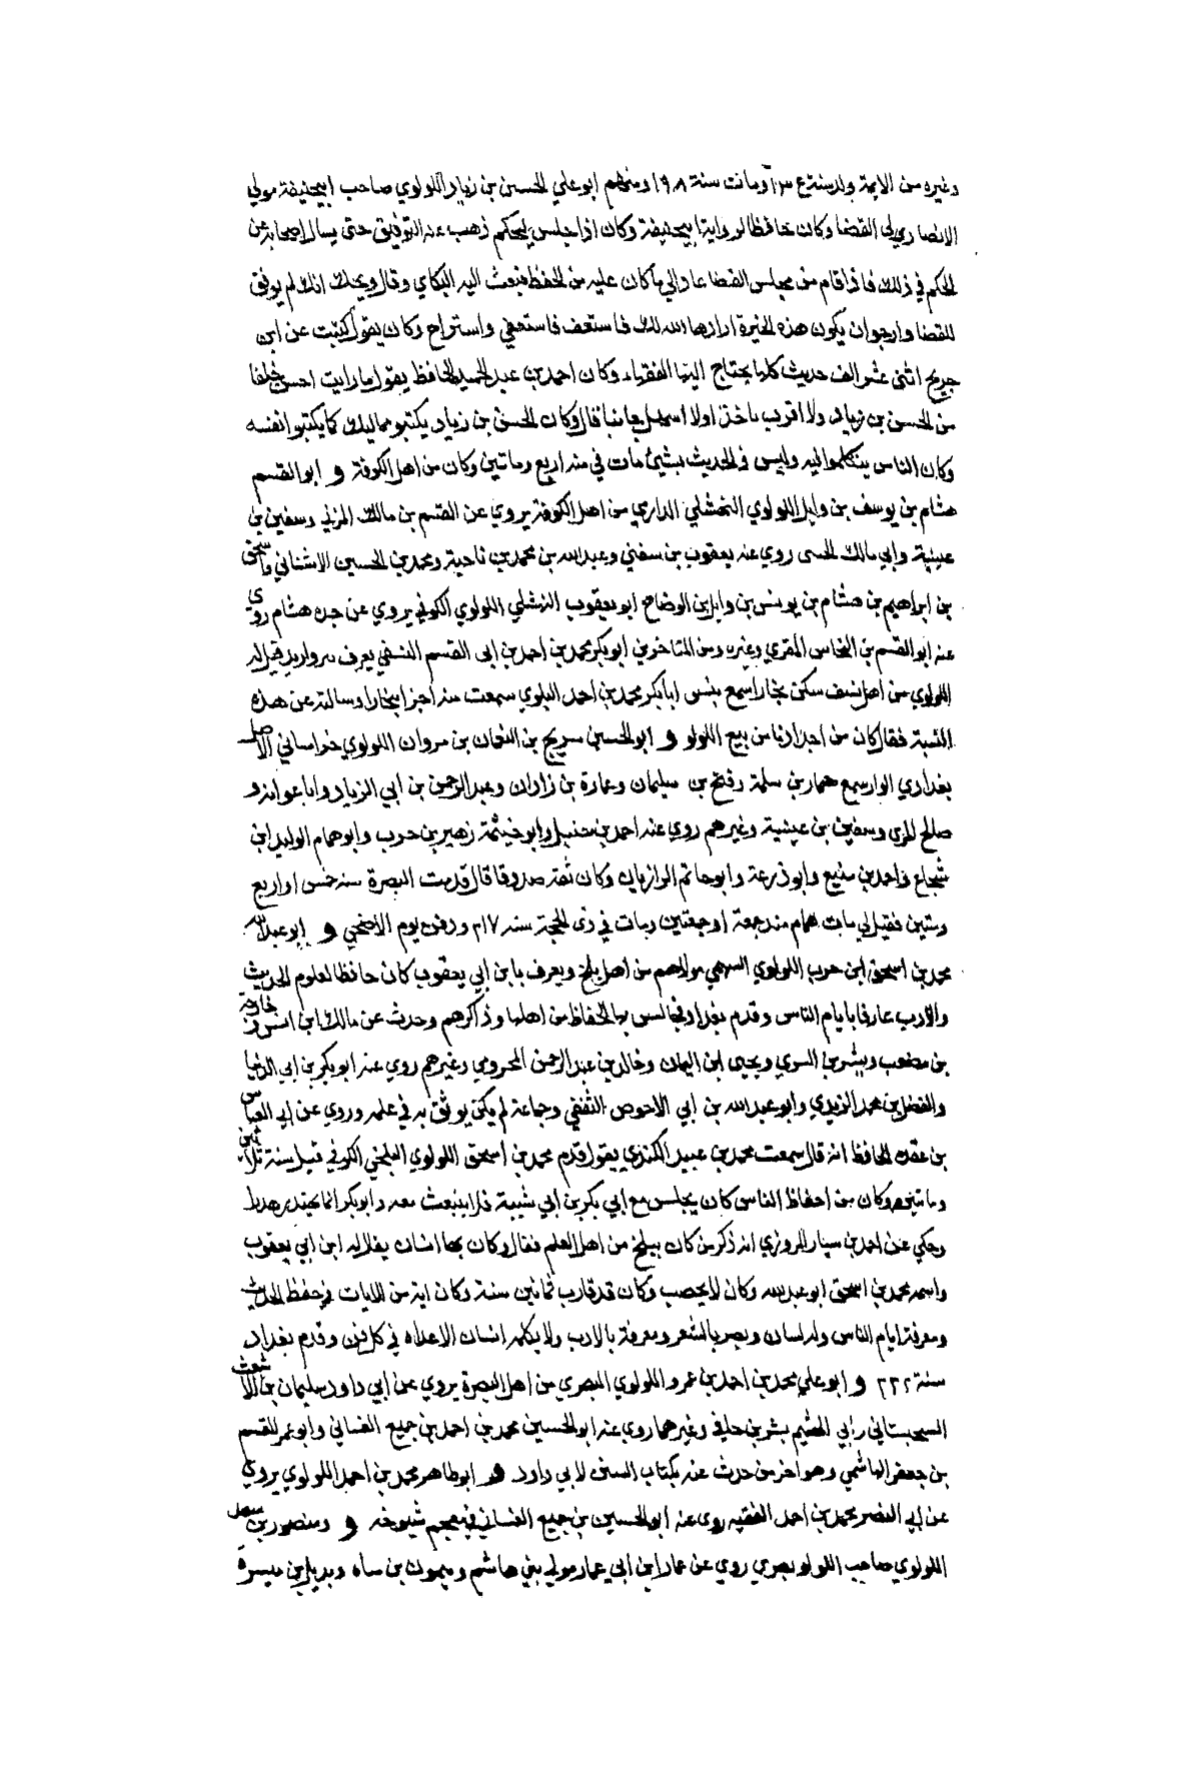 وغيره من الايمة ولد سنة ١٣٤ ومات سنة ١٩٨ ومنهم ابو علي الحسن بن زياد اللولوي صاحب ابيحنيفة مولي
الانصار ولي القضا وكان حافظا لرواية ابيحنيفة وكان اذا جلس ليحكم ذهب عنه التوفيق حتى يسال اصحابه عن
الحكم في ذلك فاذا قام من مجلس القضا عاد الي ما كان عليه من الحفظ فبعث اليه البكاي وقال ويحك انك لم يوفق
للقضا وارجوان يكون هذه الخيرة ارادها الله لك فاستعف فاستعفي واستراح وكان يقول كتبت عن ابن
جريج اثنى عشر الف حديث كلها يحتاج اليها الفقهاء وكان احمد بن عبد الحميد الحافظ يقول ما رايت احسن خلقا
من الحسن بن زياد ولا اقرب ماخذ اولا اسهل جانبا قال وكان الحسن بن زياد يكتبو مماليك كما يكتبو انفسه
وكان الناس يتكلموا فيه وليس في الحديث بشيئ مات في سنه اربع وماتين وكان من اهل الكوفة و ابو القسم
هشام بن يوسف بن وايل اللولوي النهشلي الداري من اهل الكوفة يروي عن القسم بن مالك المزني وسفين بن
عيينة وابي مالك روي عنه يعقوب بن سفين وعبد الله بن محمد بن ناجية ومحمد بن الحسين الاشناني واسحق
بن ابراهيم بن هشام بن يونس بن وايل بن الوضاح ابو يعقوب النهشلي اللولوي الكوفي يروي عن جده هشام روي
عنه ابو القسم بن النخاس المقري وغيره ومن المتاخرين ابو بكر محمد بن احمد بن ابى القسم النسفي يعرف قيل له
اللولوي من اهل نسف سكن بخارا سمع بنسف ابا بكر محمد بن احمد البلوي سمعت منه اجزا ببخارا وسالته عن هذه
النسبة فقال كان من اجدادنا من يبيع اللولو و ابو الحسين سريج بن النعمان بن مروان اللولوي خراساني الاصل
بغدادي الدار سمع حماد بن سلمة وفليح بن سليمان وعمارة بن زاذان وعبد الرحمن بن ابي الزياد وابا عوانه و
صالح المري وسفين بن عيينة وغيرهم روي عنه احمد بن حنبل وابو خيثمة زهير بن حرب وابو همام الوليد ابن
شجاع واحمد بن منيع وابو ذرعة وابو حاتم الرازيان وكان ثقة صدوقا قال قدمت البصرة سنه خمس او اربع
وستين فقيل لي مات همام منذ جمعة او جمعتين ومات في ذى الحجة سنه ٢١٧ ودفن يوم الاضحي و ابو عبد الله
محمد بن اسحق ابن حرب اللولوي السهمي مولاهم من اهل بلخ ويعرف بابن ابي يعقوب كان حافظا لعلوم الحديث
والادب عارفا بايام الناس وقدم بغداد فجالس بها الحفاظ من اهلها وذاكرهم وحدث عن مالك ابن انس وخارجة
بن مصعب وبشر بن السري ويحيى ابن اليمان وخالد بن عبد الرحمن المخرومي وغيرهم روي عنه ابو بكر بن ابي الدنيا
والفضل بن محمد اليزيدي وابو عبد الله بن ابي الاحوص الثقفي وجماعة لم يكن يوثق به في علمه وروي عن ابي العباس
بن عقدة الحافظ انه قال سمعت محمد بن عبيد الكندي يقول قدم محمد بن اسحق اللولوي البلخي الكوفي قبل سنة ثلاثين
وماتين وكان من احفاظ الناس كان يجلس مع ابي بكر بن ابي شيبة فلا ينبعث معه وابو بكر انما
وحكي عن احمد بن سيار المروزي انه ذكر من كان ببلخ من اهل العلم فقال وكان بها انسان يقال له ابن ابي يعقوب
واسمه محمد بن اسحق ابو عبد الله وكان لا يخضب وكان قد قارب ثمانين سنة وكان اية من الايات في حفظ الحديث
ومعرفة ايام الناس وله لسان وبصر بالشعر ومعرفة بالادب ولا يكلمه انسان الا علاه في كل فن وقدم بغداد
سنة ٢٢٢ و ابو علي محمد بن احمد بن عمرو اللولوي البصري من اهل البصرة يروي عن ابي داود سليمان بن الاشعث
السجستاني وابي الهيثم بشر بن وغيرهما روي عنه ابو الحسين محمد بن احمد بن جميع الغساني وابو عمر القسم
بن جعفر الهاشمي وهو اخر من حدث عنه بكتاب السنن لابي داود و ابو طاهر محمد بن احمد اللولوي يروي
عن ابي النضر محمد بن احمد الفقيه روى عنه ابو الحسين بن جميع الغساني في معجم شيوخه و ومنصور بن سعد
اللولوي صاحب اللولو بصري روي عن عمار ابن ابي عمار مولي بني هاشم وميمون بن سياه وبديل بن ميسرة